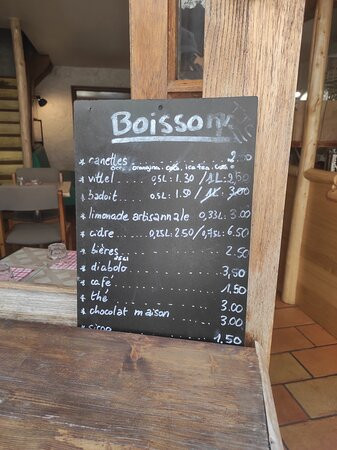 Boissons
* canettes ........ 2.50
coca, orangina, oasis, ice tea, coca
* vittel ..... 0,5L: 1.30 / 1L: 2.50
* badoit ..... 0,5L: 1.50 / 1L: 3.00
* limonade artisannale 0,33L: 3.00
* cidre ..... 0,25L: 2.50 / 0,75L: 6.50
* bières ........ 2.50
25cl
* diabolo ........ 3,50
* café ........ 1.50
* thé ........ 3.00
* chocolat maison ..... 3.00
* sirop ........ 1,50